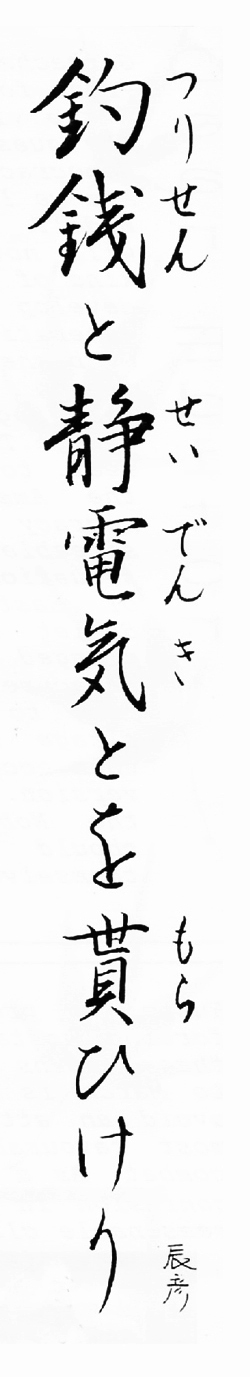 釣銭と静電気とを貰ひけり
つりせん せいでんき もら
辰彦